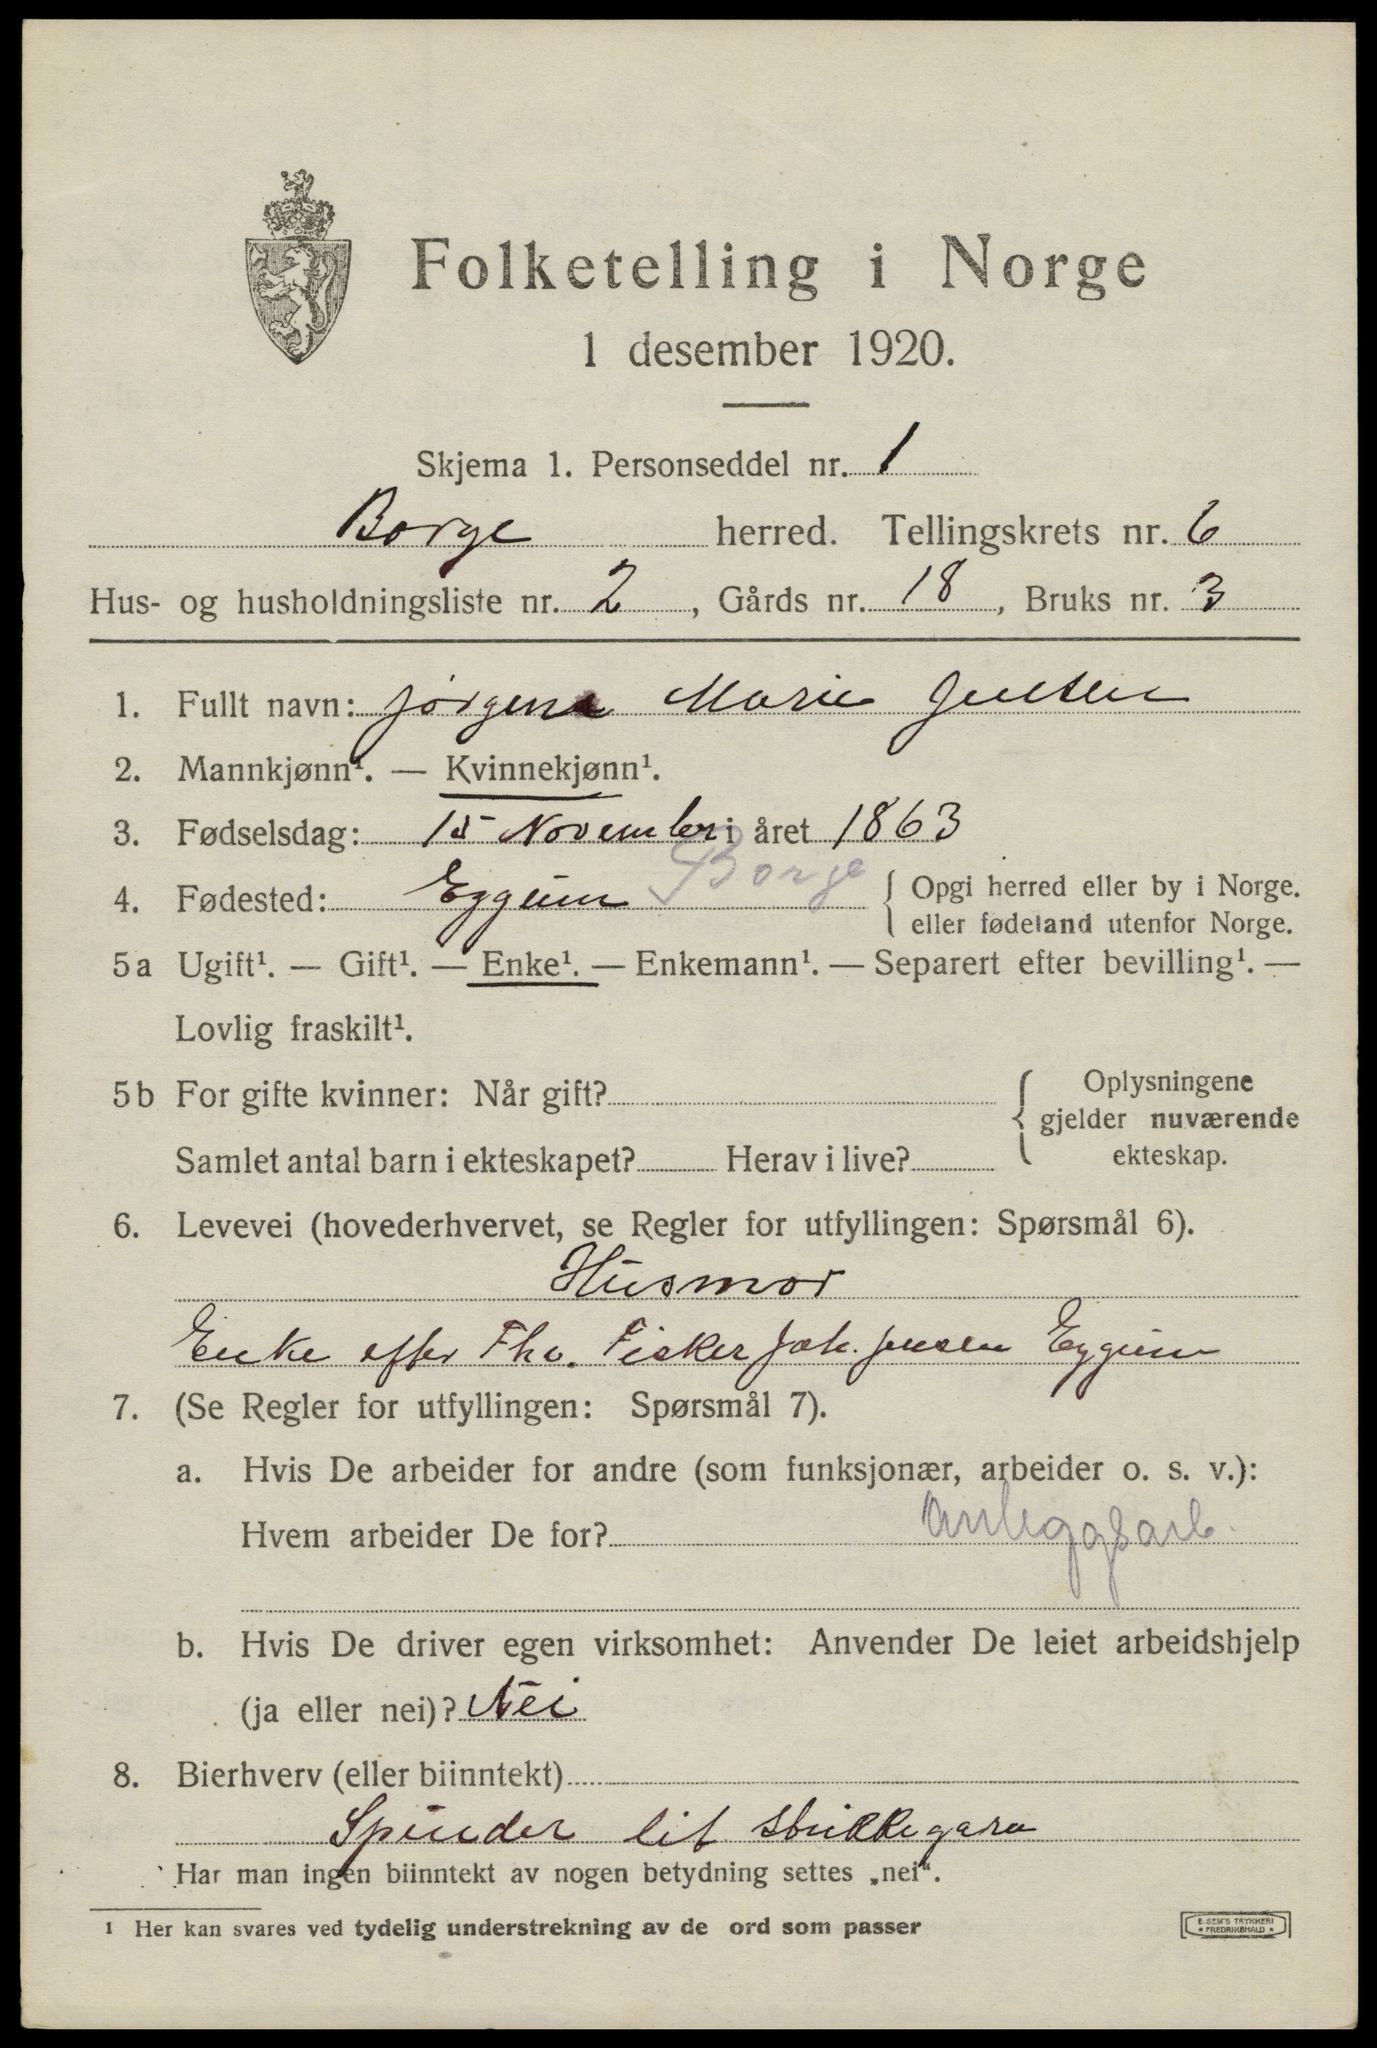 Folketelling i Norge
1 desember 1920.
Skjema 1. Personseddel nr. 1
Borge herred. Tellingskrets nr. 6
Hus- og husholdningsliste nr. 2, Gårds nr. 18, Bruks nr. 3
1. Fullt navn: Jørgine Marie Jensen
2. Mannkjønn¹. — Kvinnekjønn¹.
3. Fødselsdag: 15 November i året 1863
4. Fødested: Eggum Borge { Opgi herred eller by i Norge.
eller fødeland utenfor Norge.
5a Ugift¹. — Gift¹. — Enke¹. — Enkemann¹. — Separert efter bevilling¹. —
Lovlig fraskilt¹.
5b For gifte kvinner: Når gift? { Oplysningene
gjelder nuværende
Samlet antal barn i ekteskapet? Herav i live? ekteskap.
6. Levevei (hovederhvervet, se Regler for utfyllingen: Spørsmål 6).
Husmor
Enke efter Fhv. Fisker Joh. Jensen Eggum
7. (Se Regler for utfyllingen: Spørsmål 7).
a. Hvis De arbeider for andre (som funksjonær, arbeider o. s. v.):
Hvem arbeider De for? anleggsarb.
b. Hvis De driver egen virksomhet: Anvender De leiet arbeidshjelp
(ja eller nei)? Nei
8. Bierhverv (eller biinntekt)
Spinder lit strikkegarn
Har man ingen biinntekt av nogen betydning settes „nei“.
1 Her kan svares ved tydelig understrekning av de ord som passer
E. SEM'S TRYKKERI
• FREDRIKSHALD •